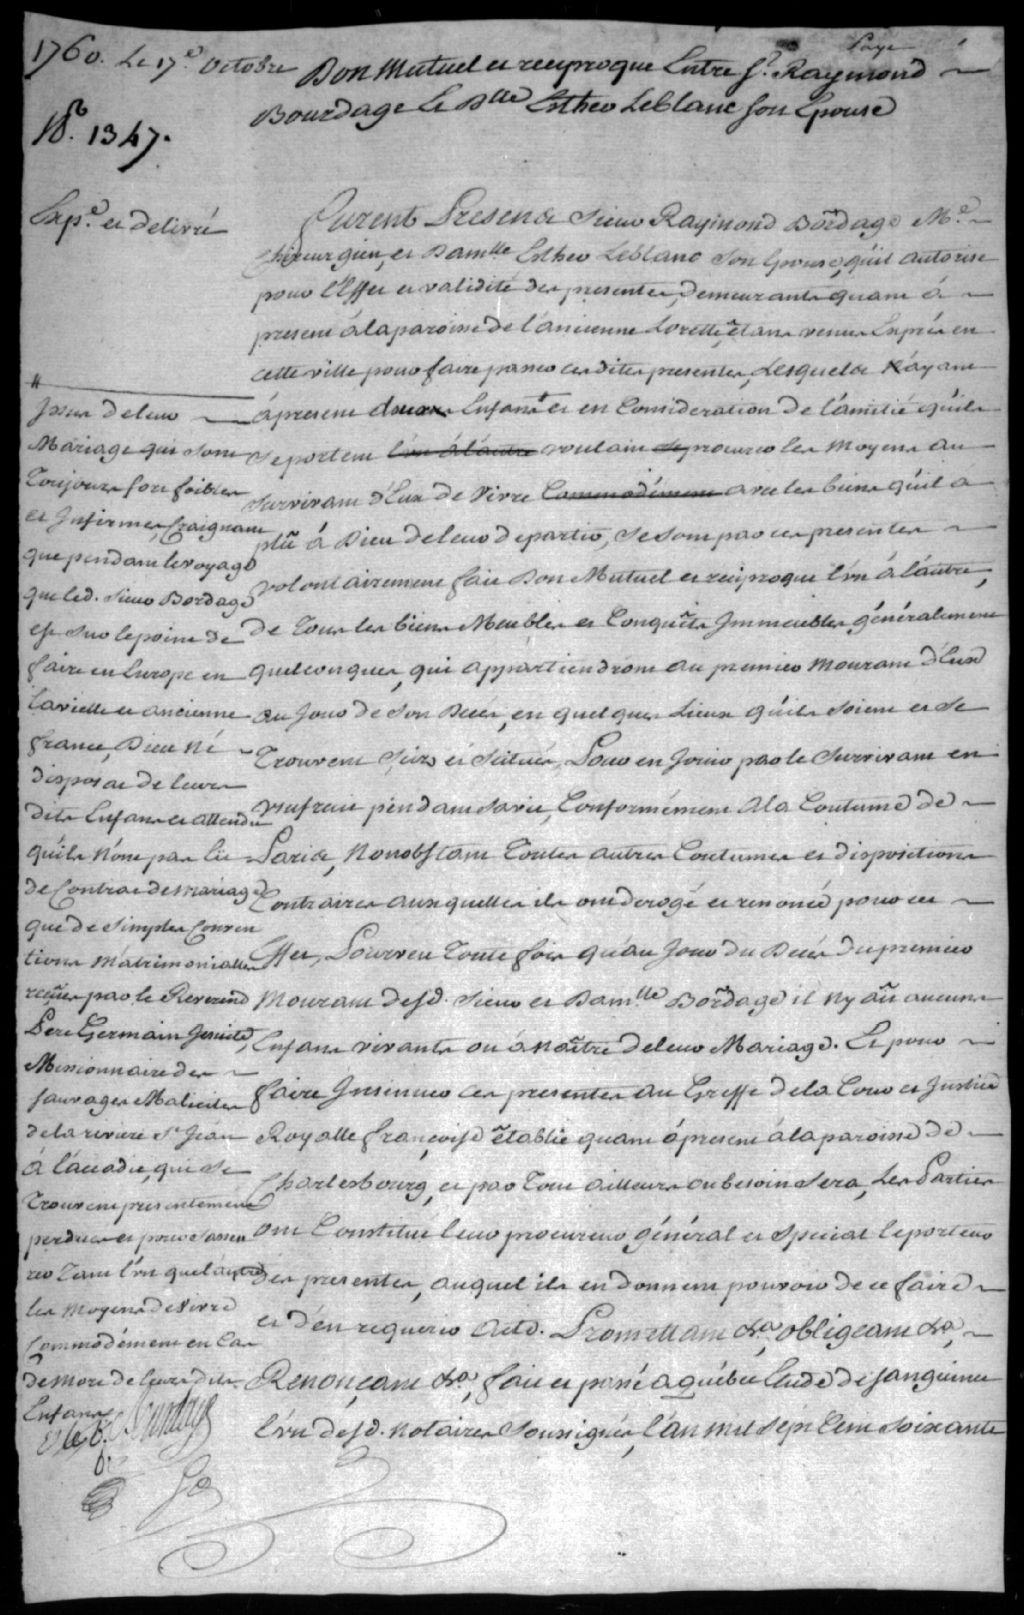 1760. Le 17e. Octobre
No. 1347.
Payé
Don Mutuel et reciproque Entre Sr. Raymond
Bourdage Et Dlle Esther Leblanc Son Epouse
Exp.e et delivré
Furent Presens Sieur Raymond Bordage Me.
Chirurgien, et Damlle Esther Leblanc Son Epouse, qu'il autorise
pour l'Effet et validité des presentes, demeurants quant à
present à la paroisse de l'ancienne Lorette, étans venus Exprès en
cette ville pour faire passer ces dites presentes, Lesquels ayant
à present deux Enfants et en Consideration de l'amitié qu'ils
Se portent l'un à l'autre voulant Se procurer les Moyens au
Survivant d'Eux de Vivre Commodément avec les biens qu'il a
plû à Dieu de leur departir, Se sont par ces presentes
volontairement fait Don Mutuel et reciproque l'un à l'autre,
de Tous les biens Meubles et Conquêts Immeubles généralement
quelconques, qui appartiendront au premier Mourant d'Eux
au Jour de Son Deces, en quelques Lieux qu'ils Soient et Se
Trouvent Sis et Situés, Pour en Jouir par le Survivant en
usufruit pendant Sa vie, Conformément A la Coutume de
Paris, Nonobstant Toutes autres Coutumes et dispositions
Contraires auxquelles ils ont derogé et renoncé pour cet
Effet, Pourveu Toute fois qu'au Jour du Decès du premier
Mourant desd. Sieur et Damlle Bordage il n'y aît aucuns
Enfans vivants ou à Naître de leur Mariage. Et pour
faire Insinuer ces presentes au Greffe de la Cour et Justice
Royalle françoise établie quant à present à la paroisse de
Charlesbourg, et par Tout ailleurs ou besoin Sera, Les Parties
ont Constitué leur procureur général et Special le porteur
des presentes, auquel ils en donnent pouvoir de ce faire
et d'en requerir Acte. Promettant &a, obligeant &a,
Renonçant &a, fait et passé à quebec Etude de Sanguinet
l'un desd. Notaires Soussignés, l'an mil Sept Cent Soixante
Issus de leur
Mariage qui sont
Toujours fort foibles
et Infirmes, Craignant
que pendant le voyage
que led. Sieur Bordage
est Sur le point de
faire en Europe en
la vielle et ancienne
france, Dieu Né
dispose de leurs
dits Enfans et attendu
qu'ils N'ont pas eu
de Contrat de mariage
que de Simples Conven
tions Mâtrimonialles
reçues par le Reverend
Pere Germain Jesuite,
Missionnaire des
Sauvages Malecites
de la riviere St Jean
à l'accadie, qui Se
Trouvent presentement
perdues et pour S'assu
rer Tant l'un que l'autre
les Moyens de Vivre
Commodément en Cas
de Mort de leurs dits
Enfans